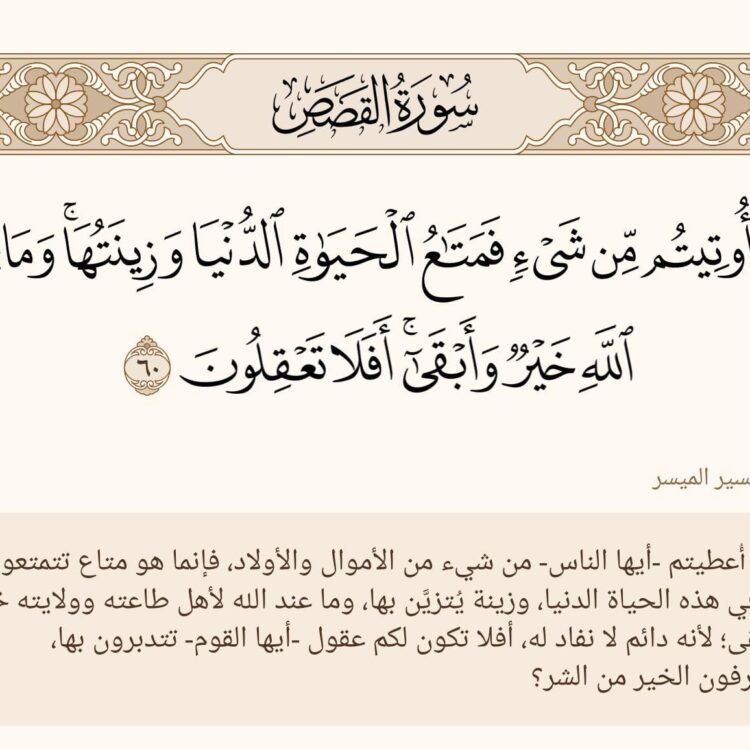 سُورَةُ القَصَصِ
أُوتِيتُم مِّن شَيْءٍ فَمَتَٰعُ ٱلْحَيَوٰةِ ٱلدُّنْيَا وَزِينَتُهَاۚ وَمَا
ٱللَّهِ خَيْرٌ وَأَبْقَىٰٓۚ أَفَلَا تَعْقِلُونَ ٦٠
الميسر
أُعطيتم -أيها الناس- من شيء من الأموال والأولاد، فإنما هو متاع تتمتعو
هذه الحياة الدنيا، وزينة يُتزيَّن بها، وما عند الله لأهل طاعته وولايته
لأنه دائم لا نفاد له، أفلا تكون لكم عقول -أيها القوم- تتدبرون بها،
رفون الخير من الشر؟